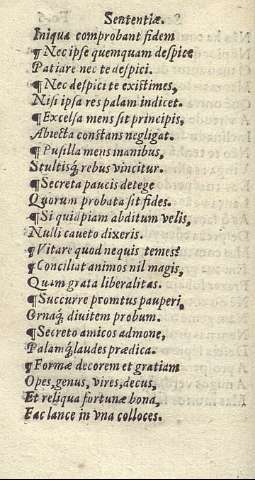 Sententiæ.
Iniquæ comprobant fidem
¶ Nec ipse quemquam despice
Patiare nec te despici.
¶ Nec despici te existimes,
Nisi ipsa res palam indicet.
¶ Excelsa mens sit principis,
Abiecta constans negligat.
¶ Pusilla mens inanibus,
Stultisq́; rebus vincitur.
¶ Secreta paucis detege
Quorum probata sit fides.
¶ Si quidpiam abditum velis,
Nulli caueto dixeris.
¶ Vitare quod nequis temes?
¶ Conciliat animos nil magis,
Quam grata liberalitas.
¶ Succurre promtus pauperi,
Ornaq́; diuitem probum.
¶ Secreto amicos admone,
Palamq́; laudes prædica.
¶ Formæ decorem et gratiam
Opes, genus, vires, decus,
Et reliqua fortunæ bona,
Fac lance in vna colloces.